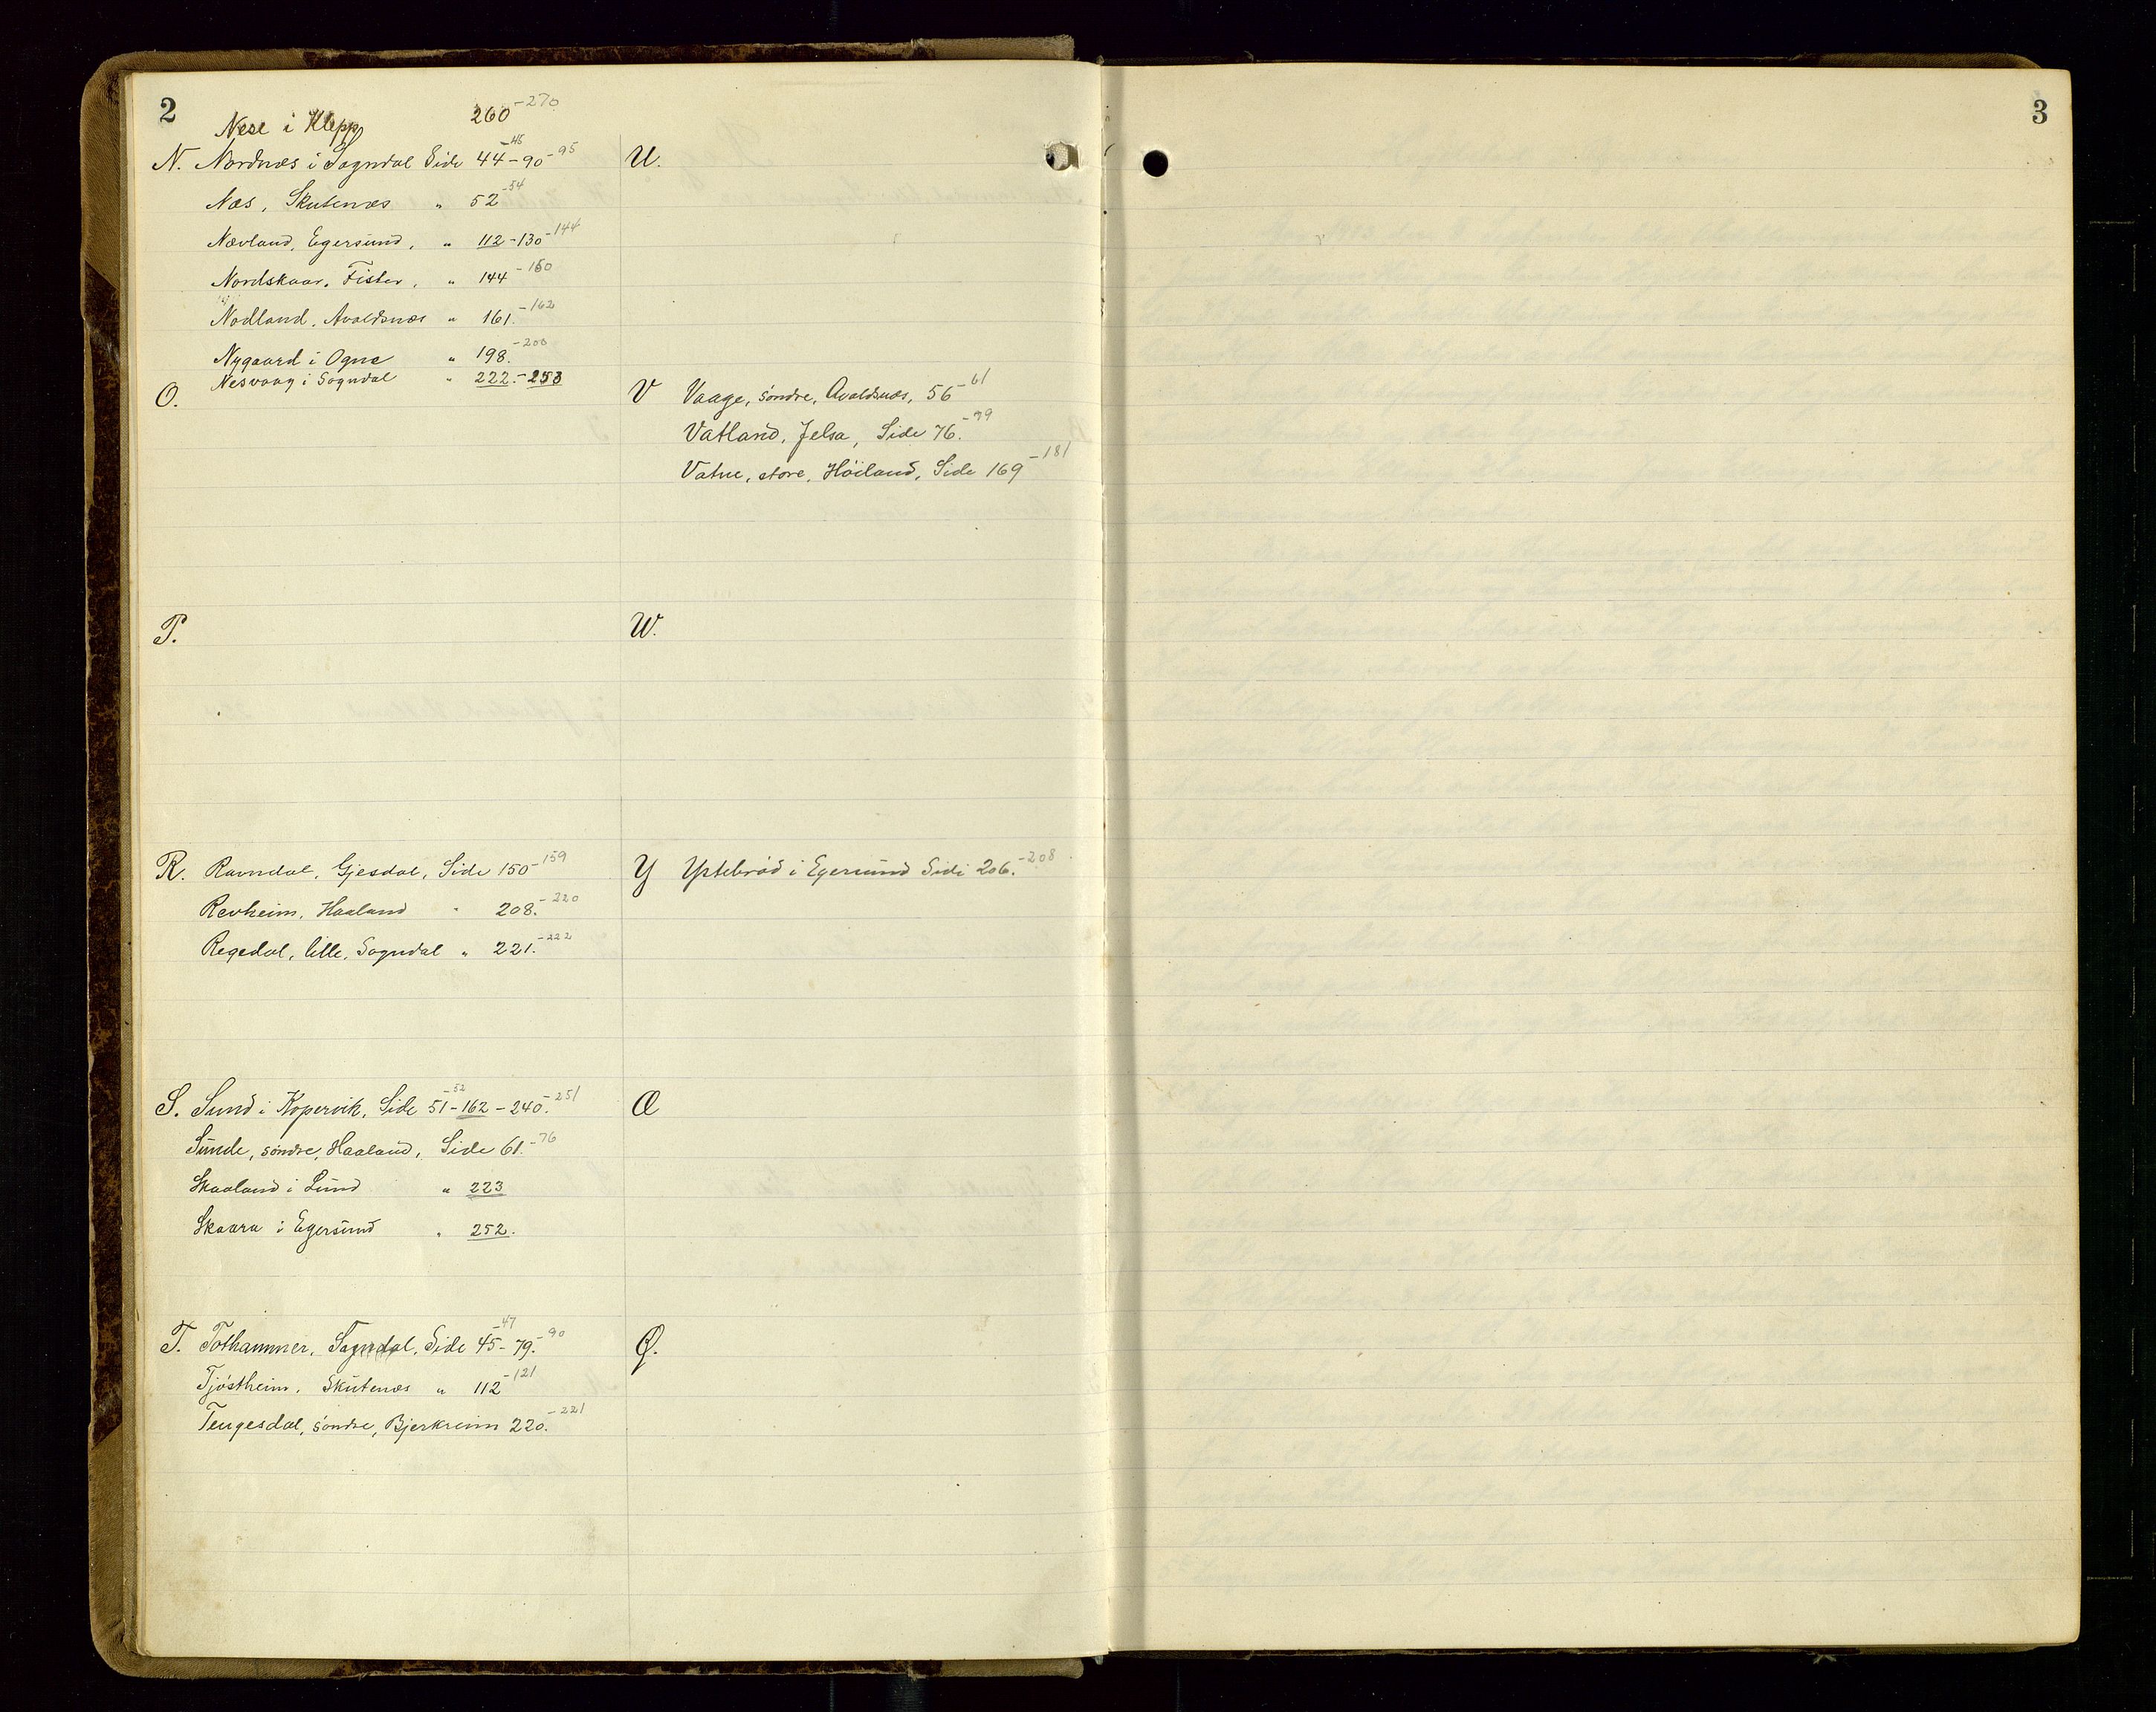 2
Nese i Klepp 260-270
N. Nordnes i Sogndal Side 44-46-90-95
Næs, Skutenæs " 52-54
Nævland, Egersund, " 112-130-144
Nordskaar, Fister, " 144-150
Nodland, Avaldsnæs " 161.-162
Nygaard i Ogne " 198.-200
Nesvaag i Sogndal " 222.-253
O.
P.
R. Ravndal, Gjesdal, Side 150-159
Revheim, Haaland " 208.-220
Regedal, lille, Sogndal " 221.-222
S. Sund i Kopervik, Side 51-52-162-240.-251
Sunde, söndre, Haaland, Side 61.-76
Skaaland i Lund " 223
Skaara i Egersund " 252.
T. Tothammer, Sogndal, Side 45-47-79.-90
Tjöstheim, Skutenæs " 112-121
Tengesdal, söndre, Bjerkreim 220.-221
U.
V Vaage, söndre, Avaldsnæs, 56-61
Vatland, Jelsa, Side 76.-79
Vatne, store, Höiland, Side 169-181
W.
Y Ystebröd i Egersund Side 206.-208
Æ
Ø.
3